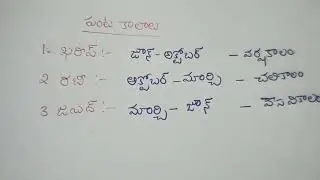 పంట కాలాలు
1- ఖరీఫ్ :- జూన్- అక్టోబర్ - వర్షకాలం
2 రబీ :- అక్టోబర్ - మార్చి - చలికాలం
3 జయిద్ :- మార్చి - జూన్ - వేసవికాలం